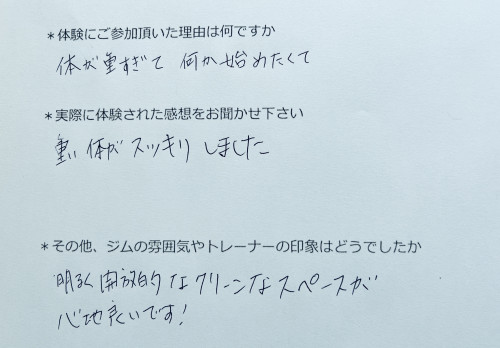 *体験にご参加頂いた理由は何ですか
体が重すぎて 何か始めたくて
*実際に体験された感想をお聞かせ下さい
重い体がスッキリしました
*その他、ジムの雰囲気やトレーナーの印象はどうでしたか
明るく開放的なグリーンなスペースが
心地良いです!